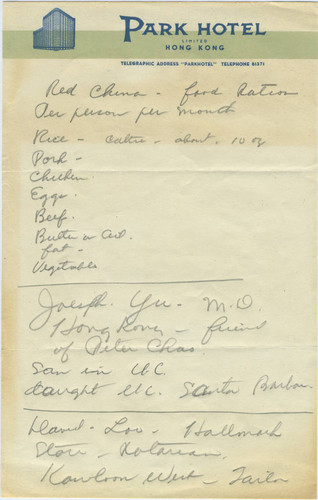 PARK HOTEL
LIMITED
HONG KONG
TELEGRAPHIC ADDRESS "PARKHOTEL" TELEPHONE 61371
Red China - food Ration
Per person per month
Rice - about 10 oz
Pork -
Chicken
Eggs
Beef
Butter or Oil
fat -
Vegetable
Joesph Yu - M.D.
Hong Kong - friend
of Peter Chas.
San in U.C.
taught U.C. Santa Barbar
David - Lou - Hallmark
Store - Rotarian
Kowloon West - Tailor